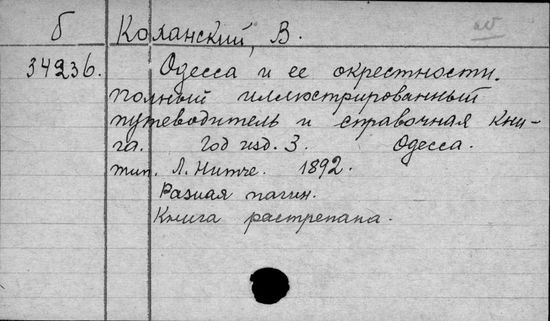 б Коланский, В.
34236. Одесса и ее окрестности.
полный иллюстрированный
путеводитель и справочная кни-
га. Год изд. 3. Одесса.
тип. Л. Нитче. 1892.
Разная пагин.
Книга растрепана.